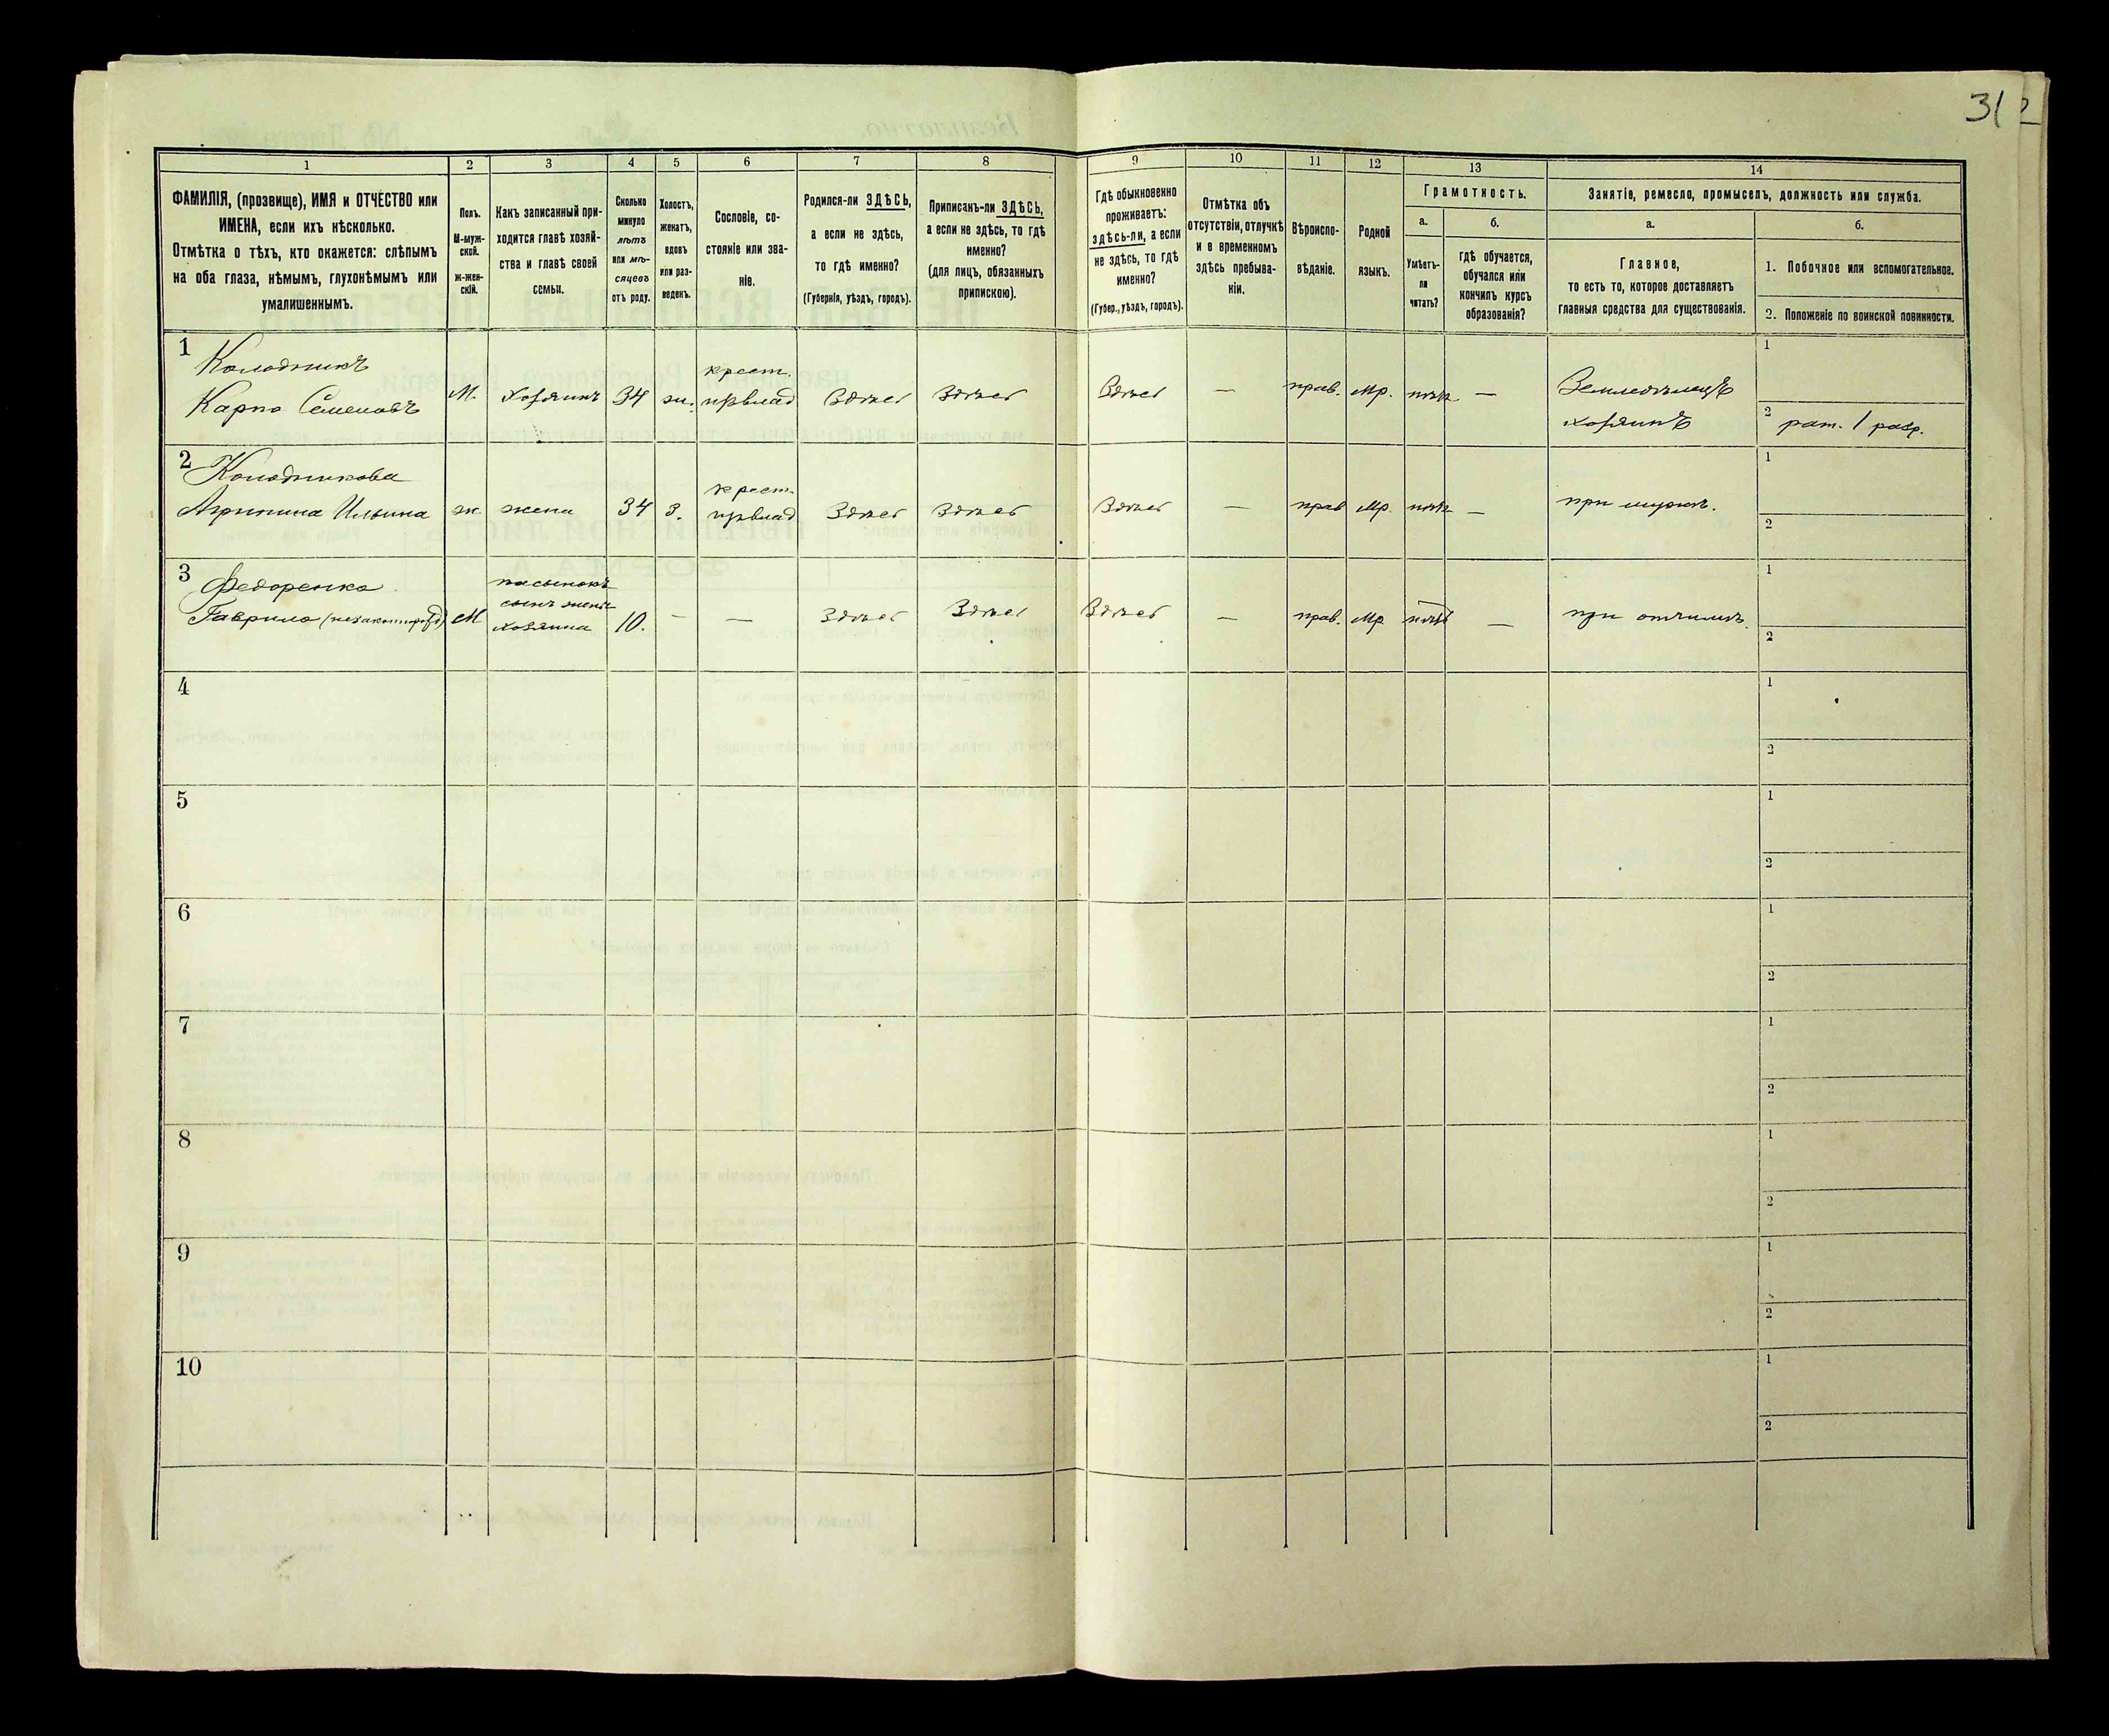 31
1
2
3
4
5
6
7
8
9
10
11
12
13
14
ФАМИЛІЯ, (прозвище), ИМЯ и ОТЧЕСТВО или
ИМЕНА, если ихъ нѣсколько.
Отмѣтка о тѣхъ, кто окажется: слѣпымъ
на оба глаза, нѣмымъ, глухонѣмымъ или
умалишеннымъ.
Полъ.
М-муж-
ской.
ж-жен-
скій.
Какъ записанный при-
ходится главѣ хозяй-
ства и главѣ своей
семьи.
Сколько
минуло
лѣтъ
или мѣ-
сяцевъ
отъ роду.
Холостъ,
женатъ,
вдовъ
или раз-
веденъ.
Сословіе, со-
стояніе или зва-
ніе.
Родился-ли ЗДѢСЬ,
а если не здѣсь,
то гдѣ именно?
(Губернія, уѣздъ, городъ).
Приписанъ-ли ЗДѢСЬ,
а если не здѣсь, то гдѣ
именно?
(для лицъ, обязанныхъ
припискою).
Гдѣ обыкновенно
проживаетъ:
здѣсь-ли, а если
не здѣсь, то гдѣ
именно?
(Губер., уѣздъ, городъ).
Отмѣтка объ
отсутствіи, отлучкѣ
и о временномъ
здѣсь пребыва-
ніи.
Вѣроиспо-
вѣданіе.
Родной
языкъ.
Грамотность.
а.
Умѣетъ-
ли
читать?
б.
гдѣ обучается,
обучался или
кончилъ курсъ
образованія?
Занятіе, ремесло, промыселъ, должность или служба.
а.
Главное,
то есть то, которое доставляетъ
главныя средства для существованія.
б.
1. Побочное или вспомогательное.
2. Положеніе по воинской повинности.
1
Колодникъ
Карпо Семеновъ
М.
Хозяинъ
34
ж.
крест.
Здѣсь
Здѣсь
Здѣсь
—
прав.
Мр.
нѣтъ
—
Земледѣлецъ
хозяинъ
1
2 рат. 1 разр.
2
Колодникова
Агрипина Ильина
ж.
жена
34
з.
крест.
Здѣсь
Здѣсь
Здѣсь
—
прав
Мр.
нѣтъ
—
при мужѣ.
1
2
3
Федоренко
Гаврило (незаконнорожд)
М
пасынокъ
сынъ жены
хозяина
10.
—
—
Здѣсь
Здѣсь
Здѣсь
—
прав.
Мр
нѣтъ
—
при отчимѣ.
1
2
4
1
2
5
1
2
6
1
2
7
1
2
8
1
2
9
1
2
10
1
2